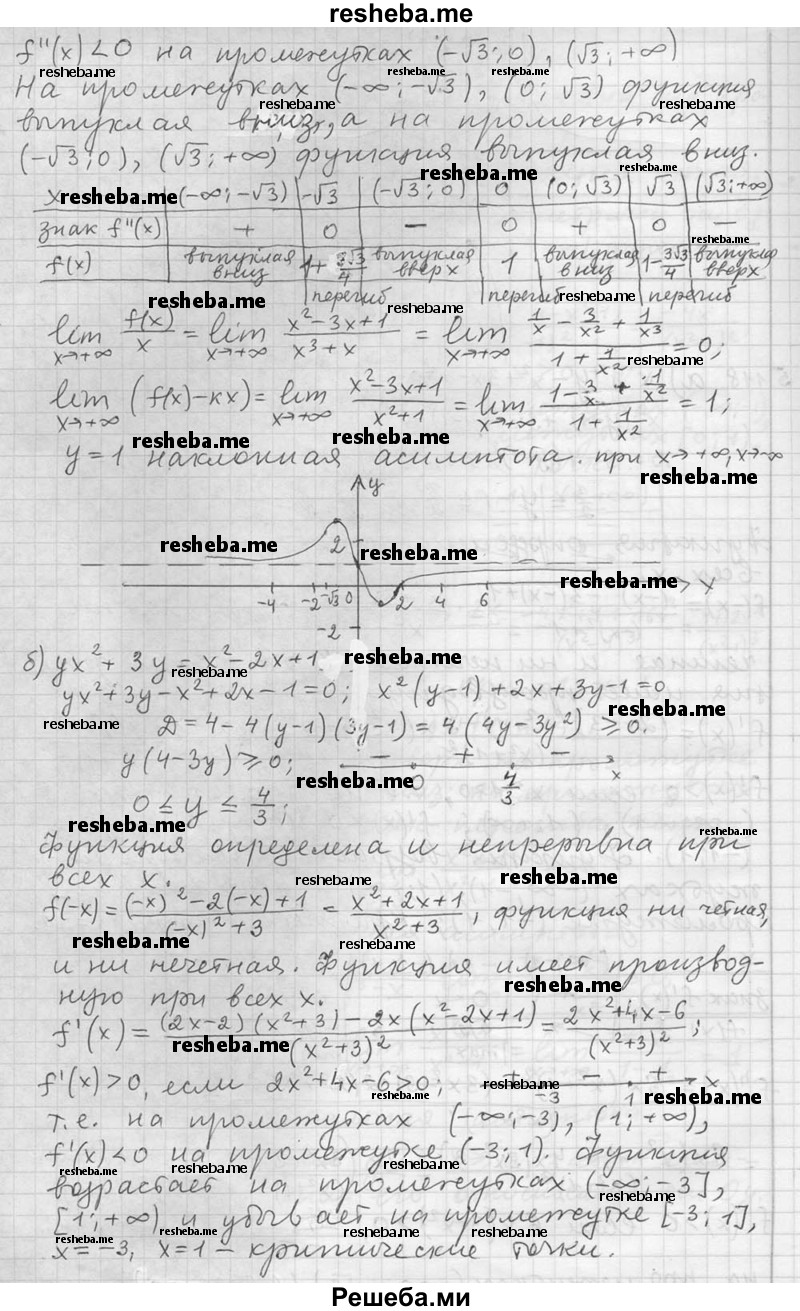 resheba.me
f''(x) < 0 на промежутках (-√3; 0), (√3; +∞)
На промежутках (-∞; -√3), (0; √3) функция
выпуклая вниз, а на промежутках
(-√3; 0), (√3; +∞) функция выпуклая вниз.
x | (-∞; -√3) | -√3 | (-√3; 0) | 0 | (0; √3) | √3 | (√3; +∞)
знак f''(x) | + | 0 | - | 0 | + | 0 | -
f(x) | выпуклая вниз | 1+3√3/4 | выпуклая вверх | 1 | выпуклая вниз | 1-3√3/4 | выпуклая вверх
перегиб перегиб перегиб
lim x→+∞ f(x)/x = lim x→+∞ (x²-3x+1)/(x³+x) = lim x→+∞ (1/x - 3/x² + 1/x³)/(1 + 1/x²) = 0;
lim x→+∞ (f(x)-кx) = lim x→+∞ (x²-3x+1)/(x²+1) = lim x→+∞ (1 - 3/x + 1/x²)/(1 + 1/x²) = 1;
y = 1 наклонная асимптота при x→+∞, x→-∞
y
2
-4 -2 -√3 0 2 4 6 x
-2
б) yx² + 3y = x² - 2x + 1.
yx² + 3y - x² + 2x - 1 = 0; x²(y-1) + 2x + 3y - 1 = 0
D = 4 - 4(y-1)(3y-1) = 4(4y-3y²) ≥ 0.
y(4-3y) ≥ 0; - + - 0 4/3 x
0 ≤ y ≤ 4/3;
Функция определена и непрерывна при
всех x.
f(-x) = ((-x)² - 2(-x) + 1)/((-x)² + 3) = (x² + 2x + 1)/(x² + 3), функция ни четная,
и ни нечетная. Функция имеет производ-
ную при всех x.
f'(x) = ((2x-2)(x²+3) - 2x(x²-2x+1))/(x²+3)² = (2x²+4x-6)/(x²+3)²;
f'(x) > 0, если 2x²+4x-6 > 0; + - + -3 1 x
т.е. на промежутках (-∞; -3), (1; +∞),
f'(x) < 0 на промежутке (-3; 1). Функция
возрастает на промежутках (-∞; -3],
[1; +∞) и убывает на промежутке [-3; 1],
x = -3, x = 1 - критические точки.
Решеба.ми